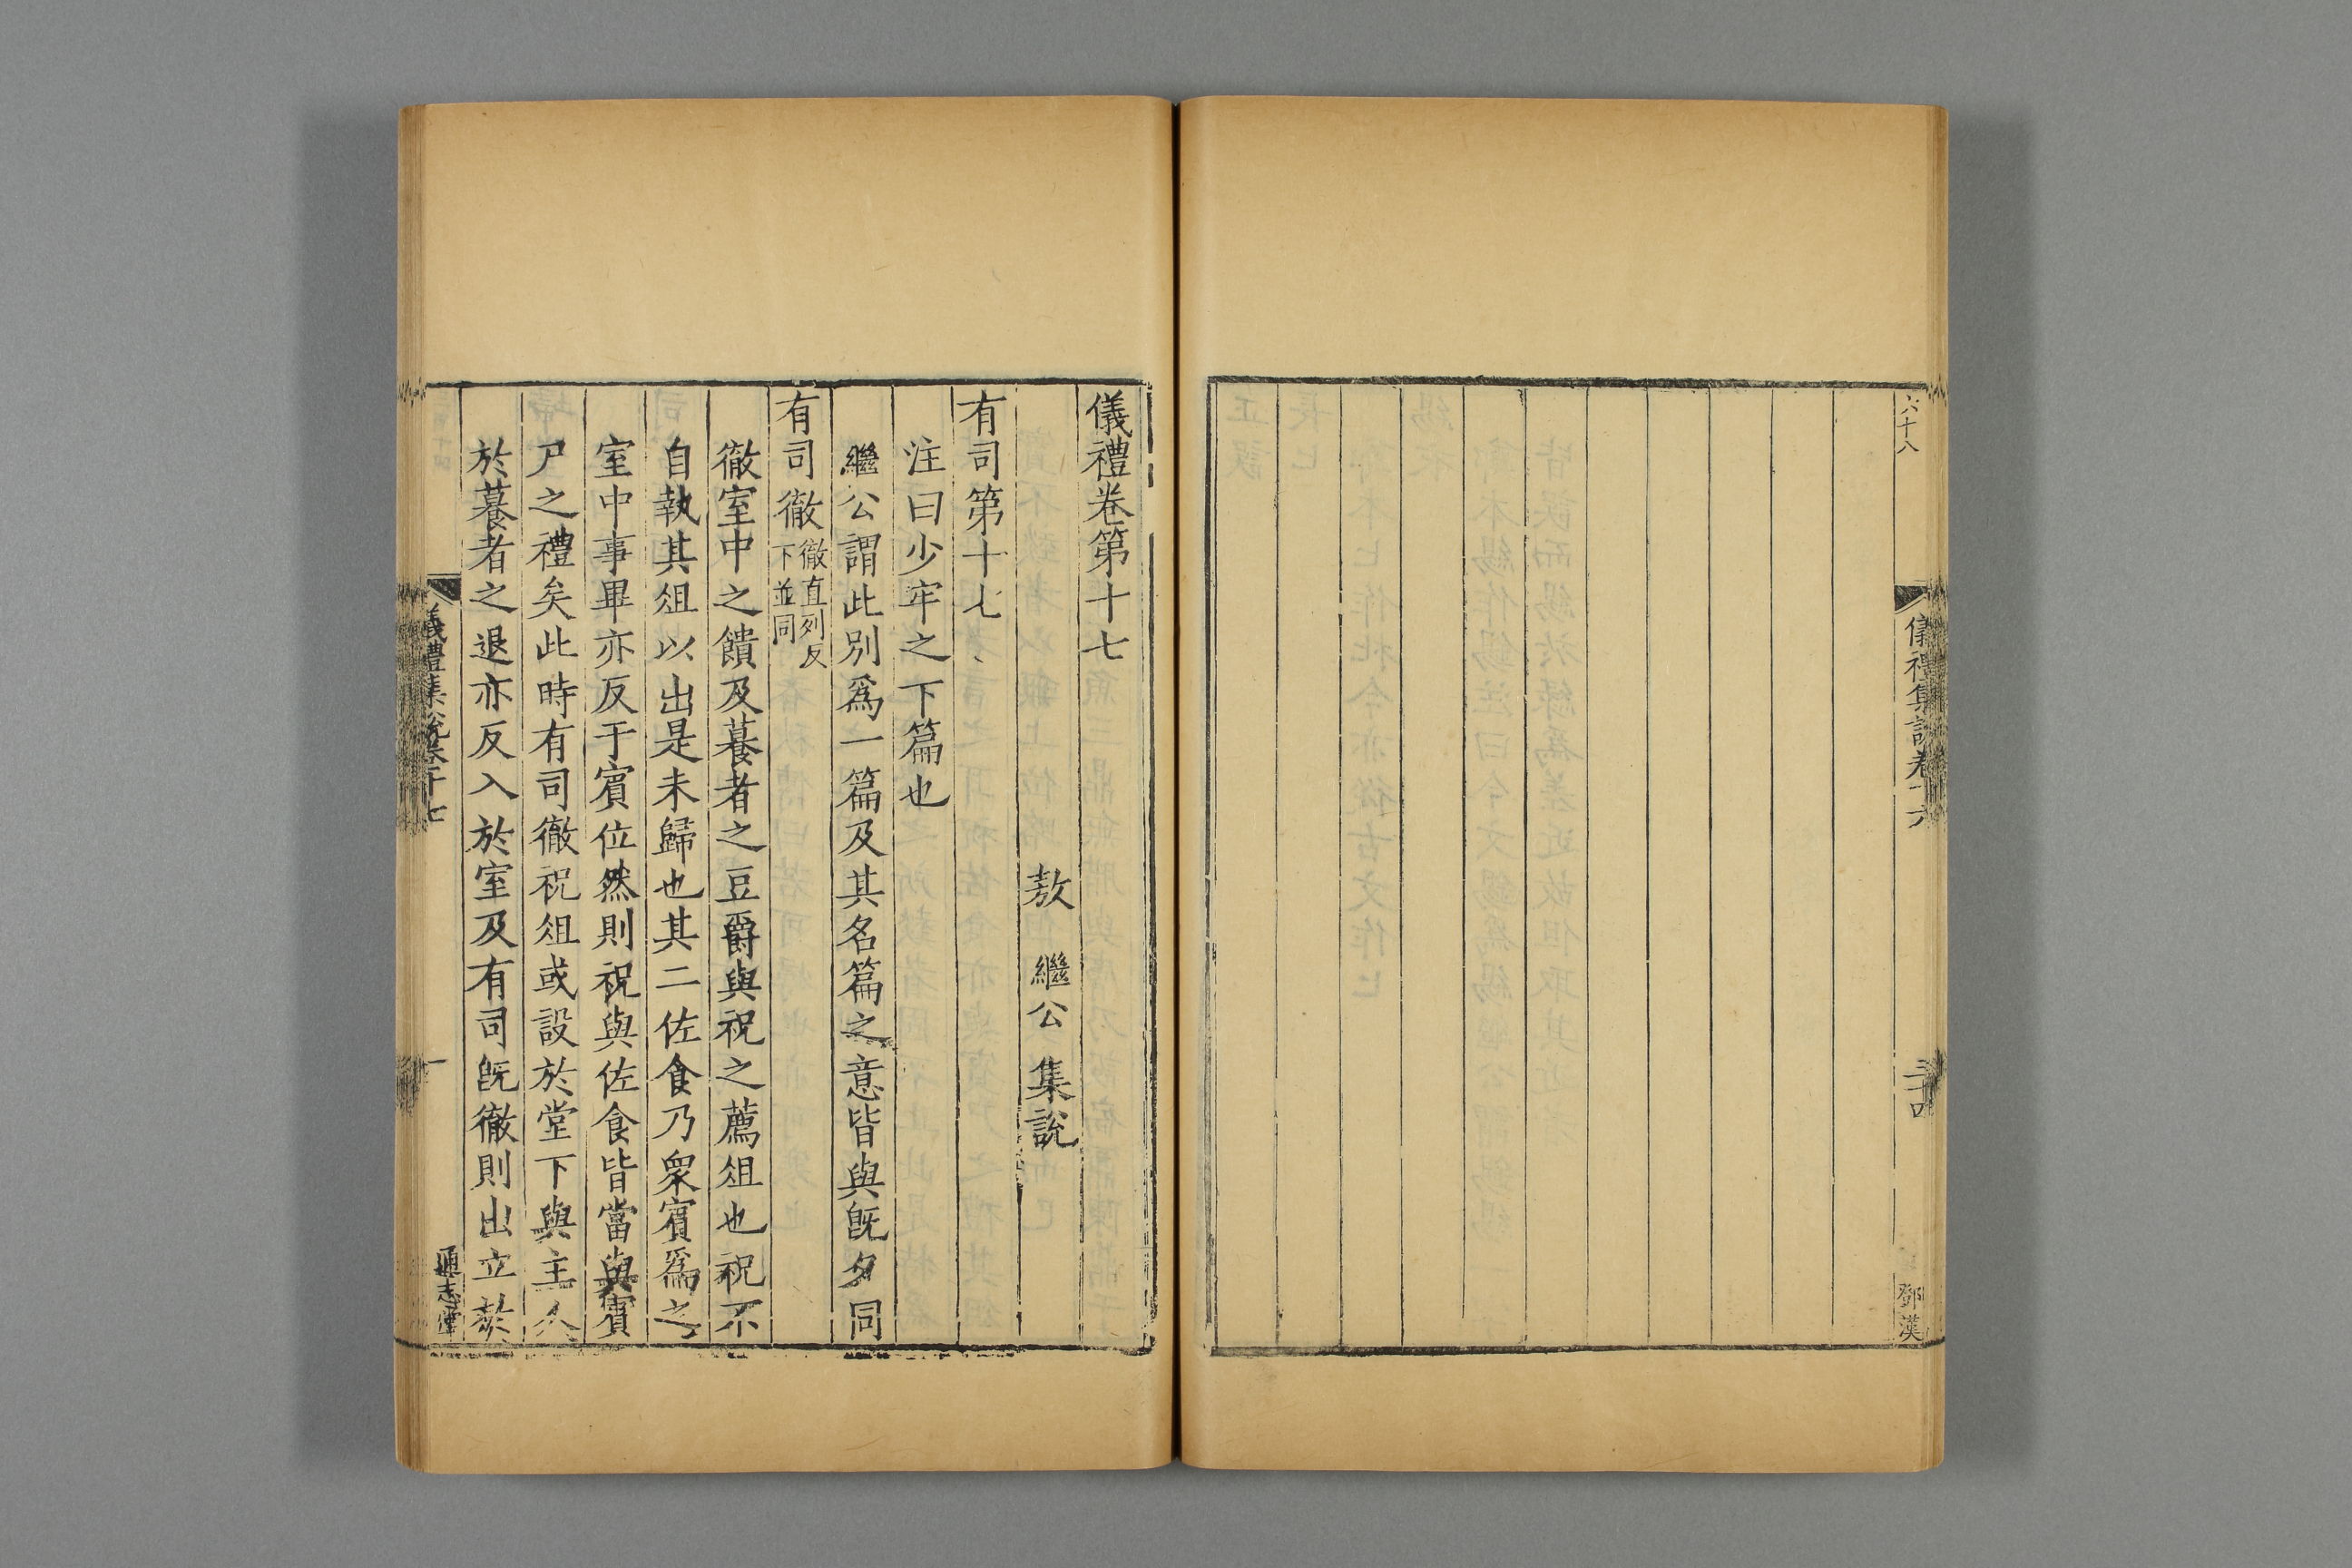 六十八
儀禮集說卷十六
三十四
鄧漢
儀禮卷第十七
敖繼公集說
有司第十七
注曰少牢之下篇也
繼公謂此別爲一篇及其名篇之意皆與旣夕同
有司徹徹直列反下並同
徹室中之饋及䉵者之豆爵與祝之薦俎也祝不
自執其俎以出是未歸也其二佐食乃衆賓爲之
室中事畢亦反于賓位然則祝與佐食皆當與賓
尸之禮矣此時有司徹祝俎或設於堂下與主人
於䉵者之退亦反入於室及有司旣徹則出立於
儀禮集說卷十七
一
通志堂